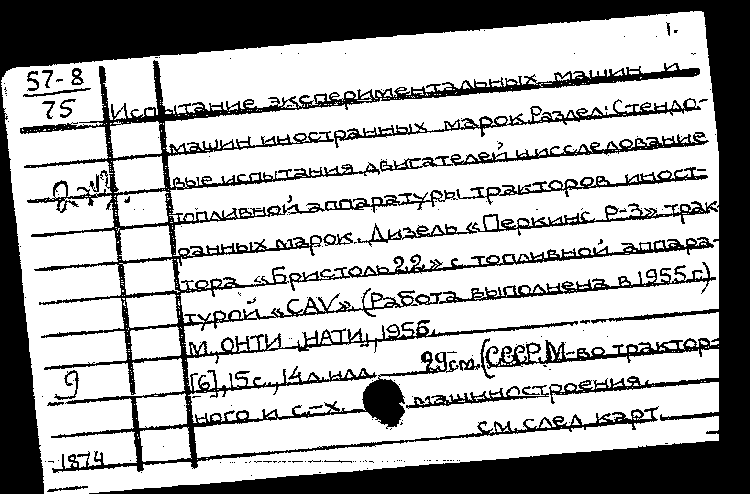 1.
57-8
75
Испытание экспериментальных машин и
машин иностранных марок. Раздел: Стендо-
вые испытания двигателей и исследование
2 экз.
топливной аппаратуры тракторов иност-
ранных марок. Дизель «Перкинс P-3» трак-
тора «Бристоль 22» с топливной аппара-
турой «CAV». (Работа выполнена в 1955 г.)
М, ОНТИ НАТИ, 1956.
9 [6], 15 с., 14 л. илл. 29 см. (СССР. М-во трактор-
ного и с.-х. машиностроения.
см. след. карт.
1874